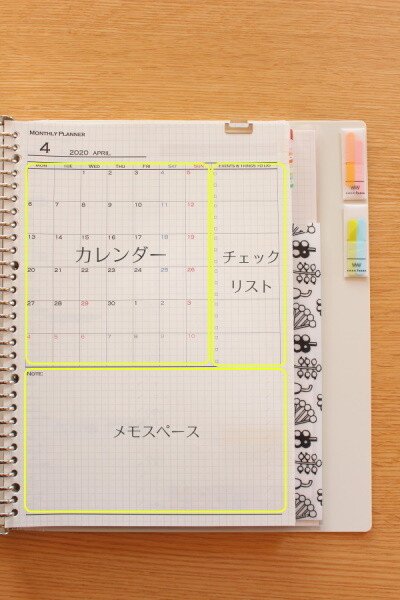 MONTHLY PLANNER
4 2020 APRIL
MON TUE WED THU FRI SAT SUN
1 2 3 4 5
6 7 8 9 10 11 12
13 14 15 16 17 18 19
カレンダー
チェック
リスト
20 21 22 23 24 25 26
27 28 29 30 1 2 3
4 5 6 7 8 9 10
NOTE:
メモスペース